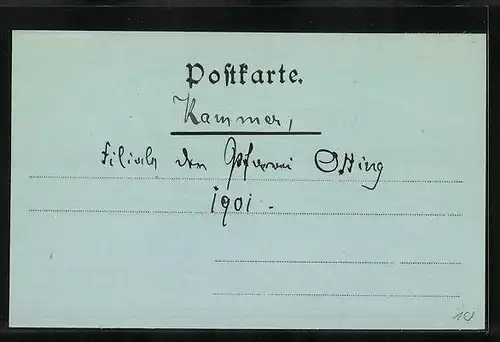 Postkarte.
Kammer,
Filiale der Pfarrei Otting
1901.
10